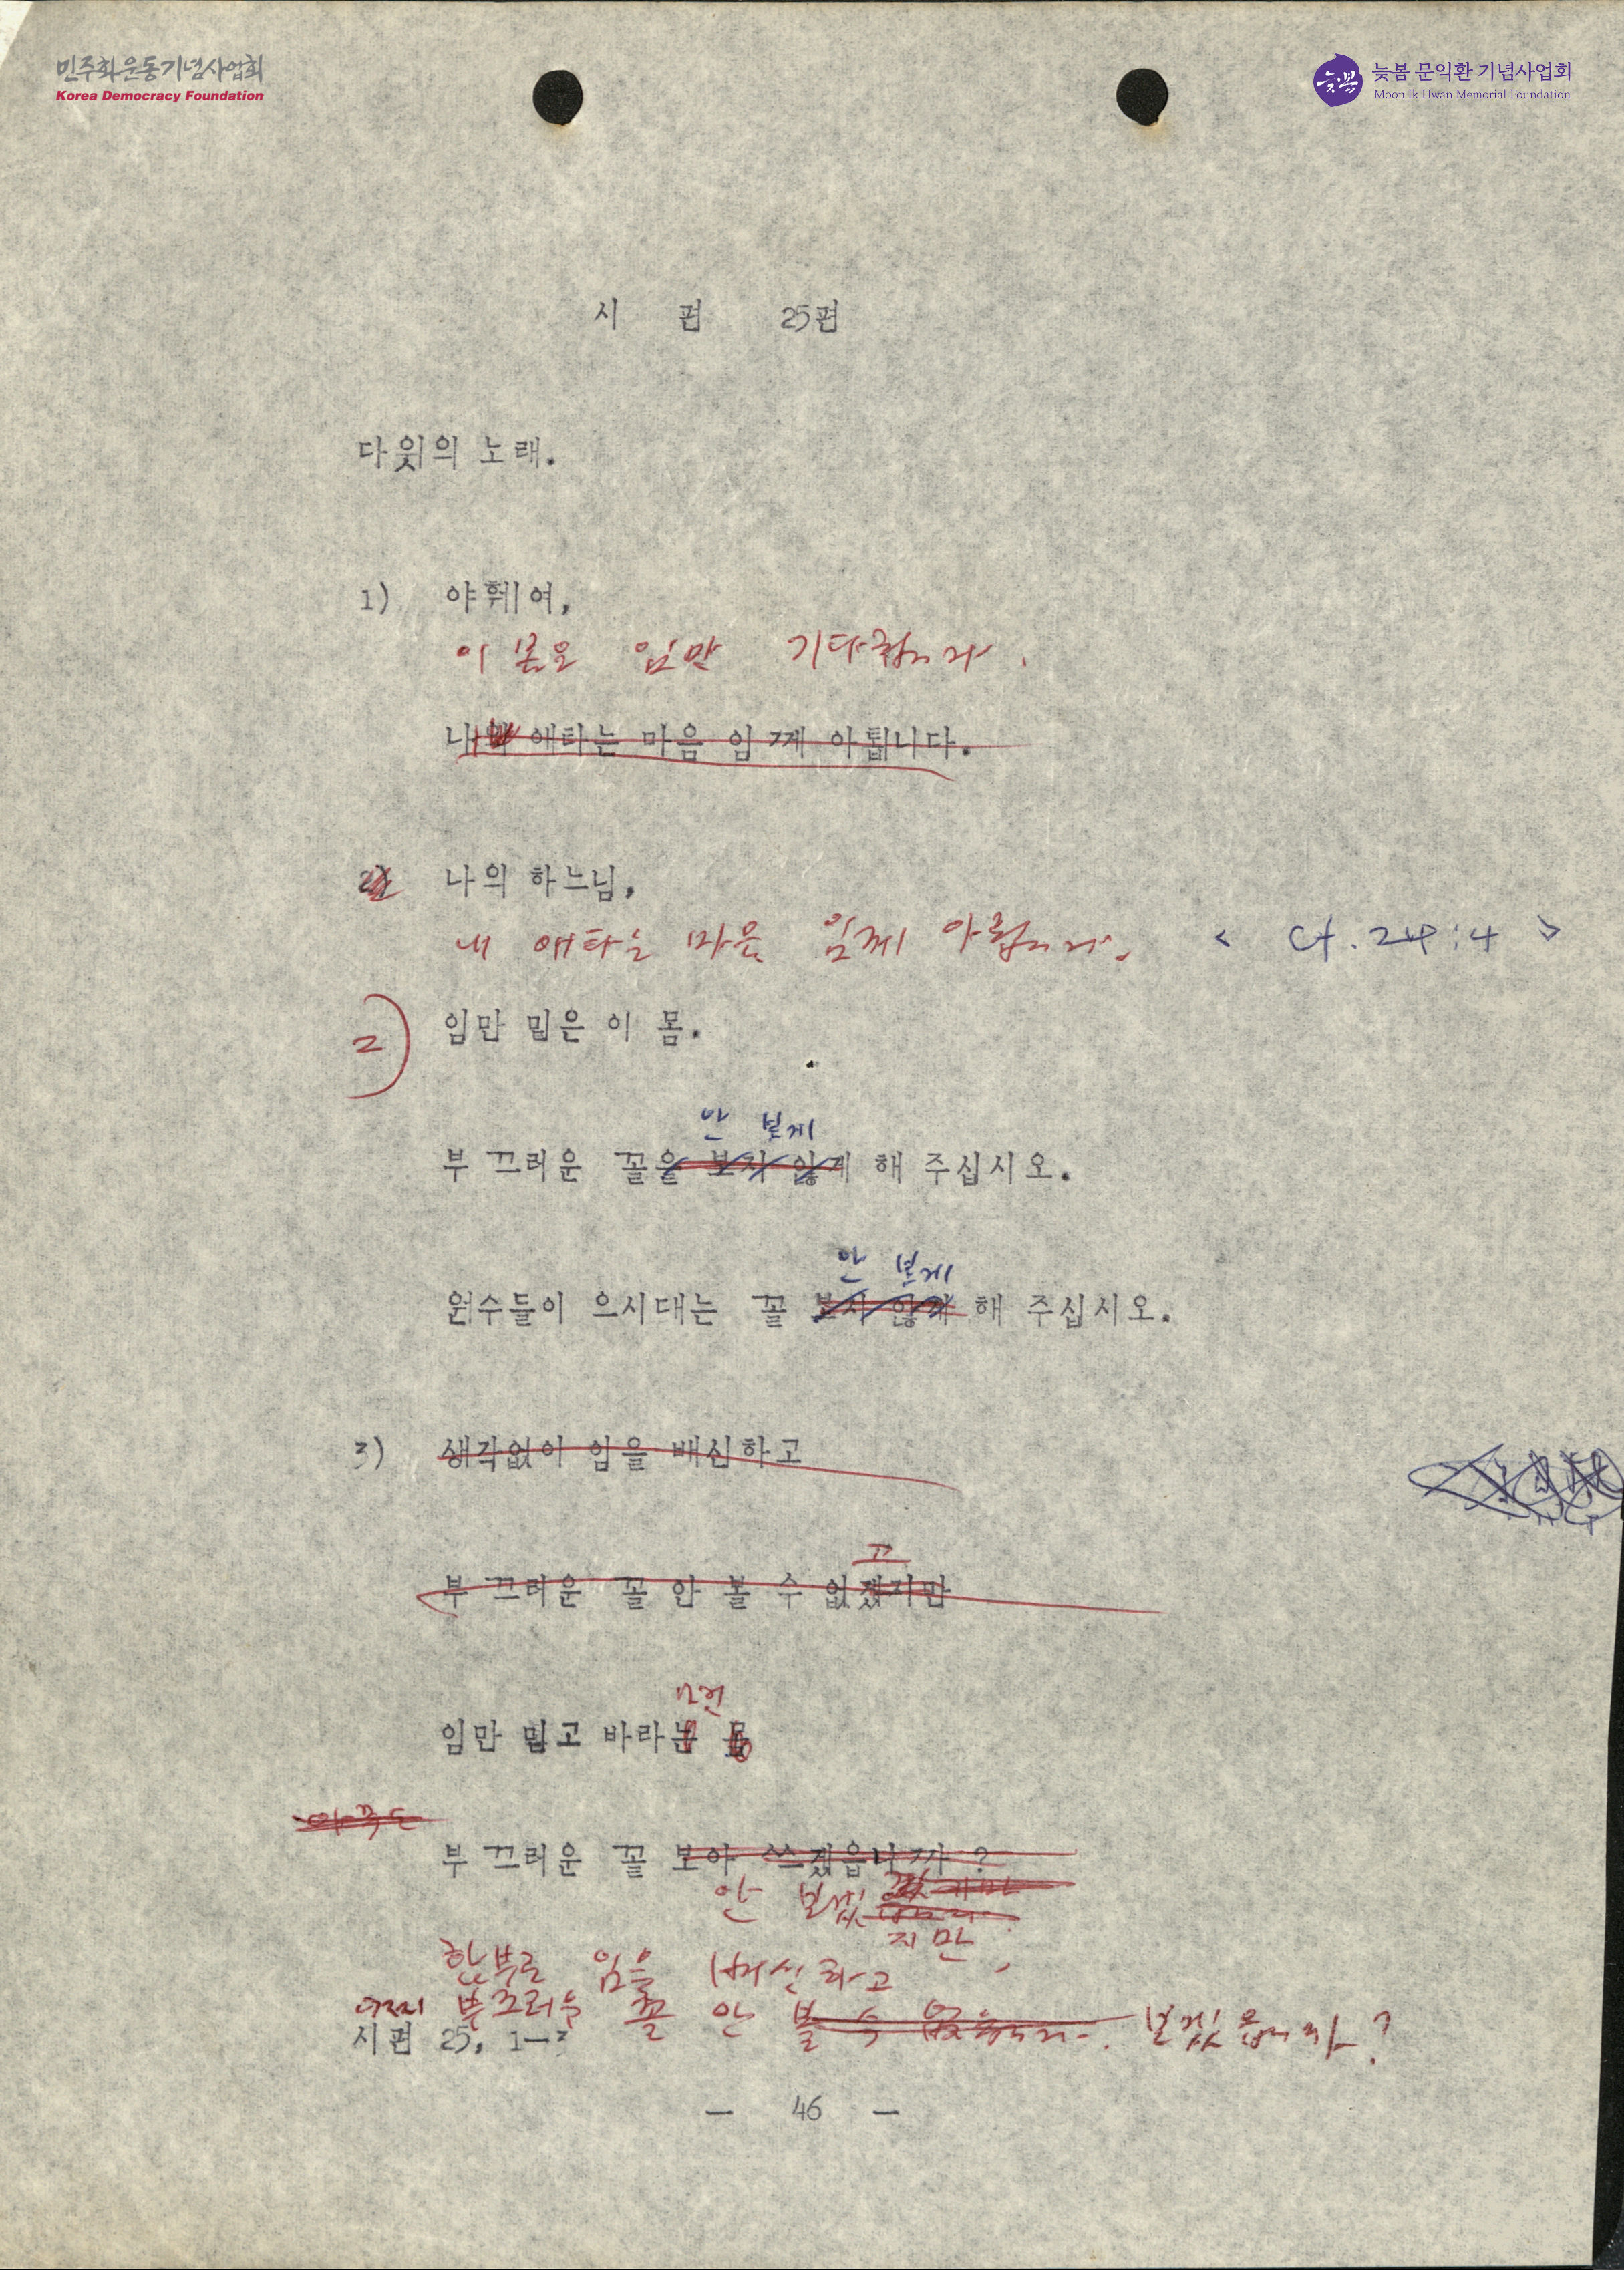 민주화운동기념사업회
Korea Democracy Foundation
늦봄
늦봄 문익환 기념사업회
Moon Ik Hwan Memorial Foundation
시 편 25편
다윗의 노래.
1) 야훼여,
이 몸은 임만 기다립니다.
내 애타는 마음 임께 아룁니다.
2) 나의 하느님,
내 애타는 마음 임께 아룁니다. < cf. 24:4 >
2) 임만 믿은 이 몸.
안 보게
부끄러운 꼴을 보지 않게 해 주십시오.
안 보게
원수들이 으시대는 꼴 보지 않게 해 주십시오.
3) 생각없이 임을 배신하고
꼬
부끄러운 꼴 안 볼 수 없겠지만
임만 믿고 바라는 몸
부끄러운 꼴 보아 쓰겠읍니까?
안 보겠
지만,
함부로 임을 배신하고
어찌 부끄러운 꼴 안 볼 수 없읍니다. 보겠읍니까?
시편 25, 1-3
- 46 -